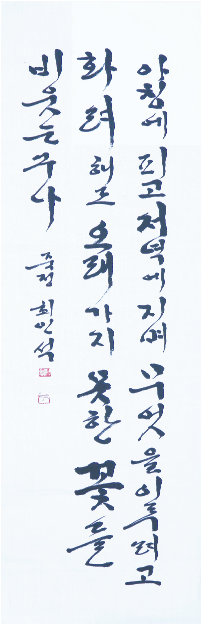 아침에 피고 저녁에 지며 무엇을 이루려고
화려해도 오래 가지 못한 꽃들
비웃는구나
죽정 최인석